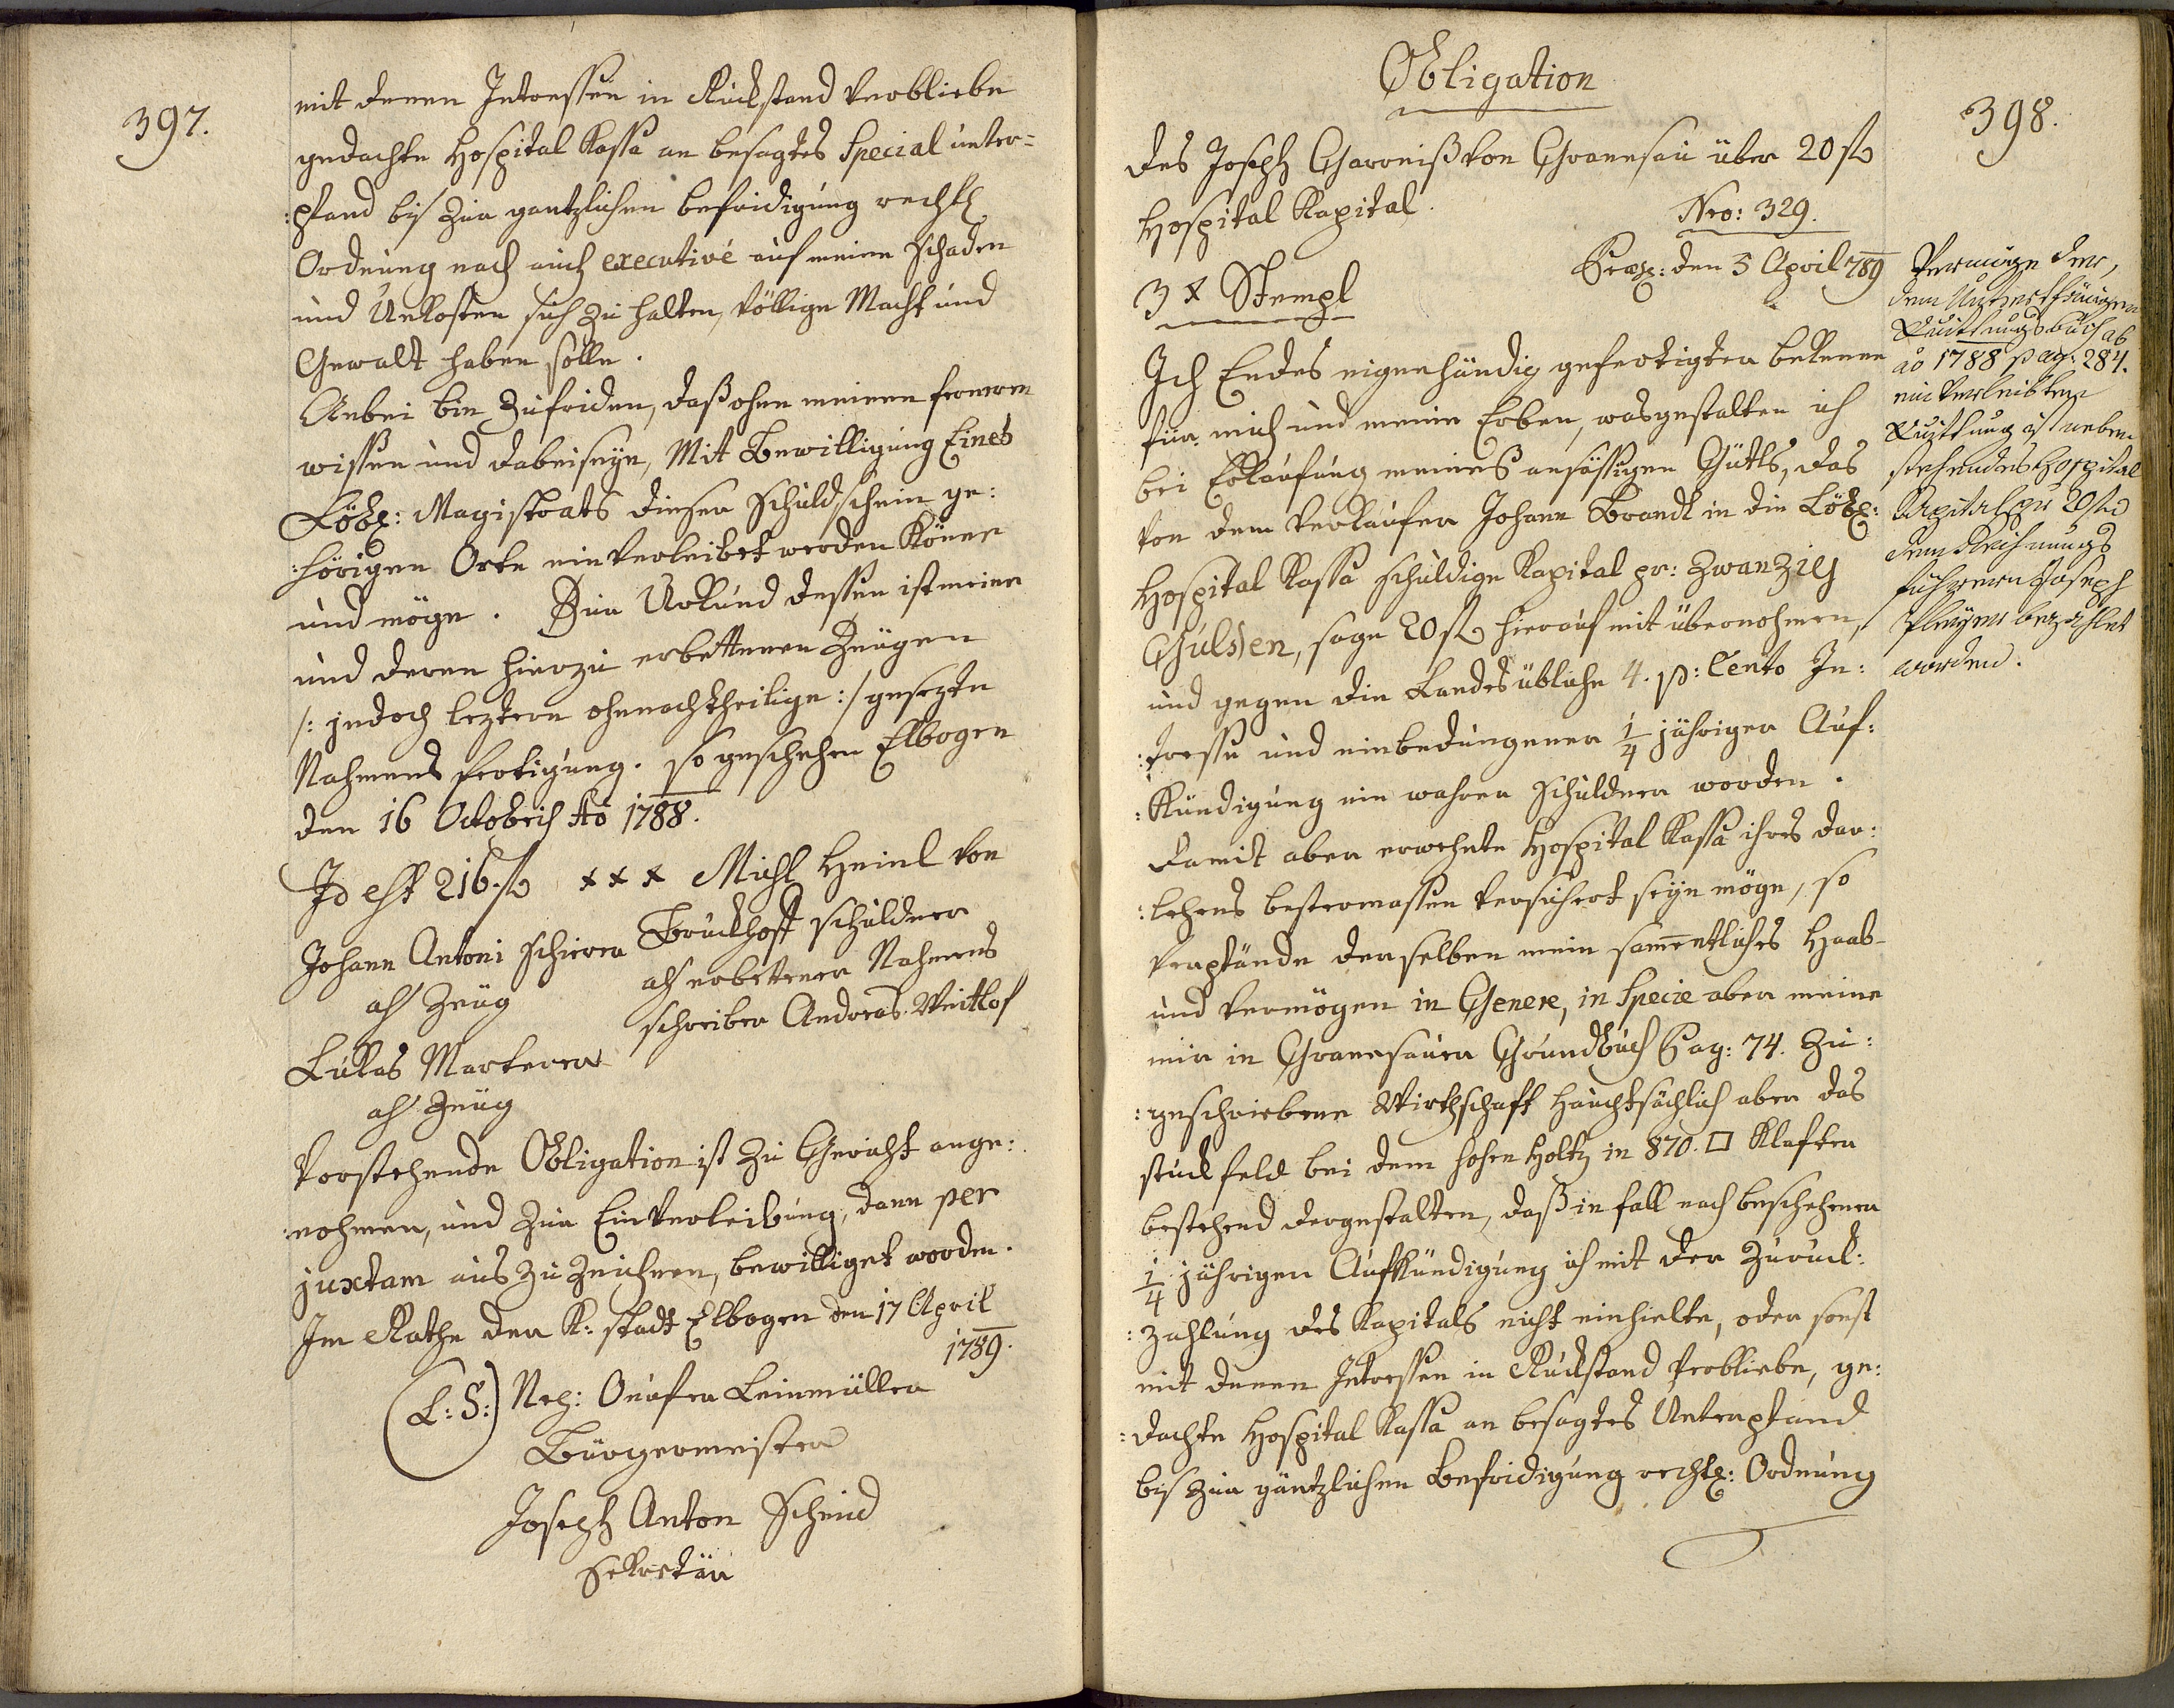 397.
mit denen Intressen in Ruckstand verbliebe
gedachte Hospital Kassa an besagtes Special unter=
:pfand bis zur gantzlichen befridigung rechtl:
Ordnung nach auch executivé auf meine Schaden
und Unkosten sich zu halten, völlige Macht und
Gewalt haben solle.
Anbei bin zufriden, daß ohne meinen fernern
wissen und dabeiseyn, Mit Bewilligung Eines
Löbl: Magistrats dieser Schuldschein ge:
:hörigen Orte einverleibet werden Könne
und möge. Zur Urkund dessen ist meine
und deren hierzu erbettenen Zeugen
/: jedoch leztern ohnnachtheilige :/ gesezte
Nahmens fertigung. so geschehen Elbogen
den 16 Octobris Ao 1788.
Id est 216 fl xxx Michl Heinl von
Bruckhoff schuldner
Johann Antoni Schierer als erbettener Nahmens
als Zeug schreiber Andreas Veitlof
Lukas Markerer
als Zeug
Vorstehende Obligation ist zu Gericht ange:
:nohmen, und zur Einverleibung, dann per
juxtam aus zu zeichnen, bewilliget worden.
Im Rathe der K: stadt Elbogen den 17 April
1789.
(L: S:) Nep: Onofer Leinmüller
Bürgermeister
Joseph Anton Schmid
Sekretär
398.
Obligation
des Joseph Garreiß von Granesau über 20 fl
Hospital Kapital.
Nro: 329.
Præs: den 3 April 789
3 x Stempl
Ich Endes eigenhändig gefertigter bekenne
für mich und meine Erben, was gestalten ich
bei Erkaufung meines ansässigen Gütls, das
von dem Verkaufer Johann Brandl in die Löbl:
Hospital Kassa schuldige Kapital pr: Zwanzig
Gulden, sage 20 fl hierauf mit übernohmen,
und gegen die Landes übliche 4. p: Cento In:
:tresse und einbedungener 1/4 jähriger Auf:
:kündigung ein wahrer Schuldner worden.
Damit aber erwehnte Hospital Kassa ihres dar:
:lehens bestermassen versichert seyn möge, so
verpfände derselben mein sammentliches Haab-
und Vermögen in Genere, in Specie aber meine
mir in Granesauer Grundbuch Pag: 74. zu:
:geschriebene Wirthschaft hauchtsächlich aber das
stuck feld bei dem hohen Holtz in 870. □ Klafter
bestehend dergestalten, daß in fall nach beschehener
1/4 jährigen Aufkündigung ich mit der Zuruck:
:zahlung des Kapitals nicht einhielte, oder sonst
mit denen Intressen in Ruckstand verbliebe, ge:
:dachte Hospital Kassa an besagtes Unterpfand
bis zur gäntzlichen Befridigung rechtl: Ordnung
Vermöge der,
dem
Quittungsbuch ab
ao 1788 pag: 284.
einverleibten
Quittung ist neben
stehendes Hospital
Kapital pr 20 fl
dem Rechnungs
führern Joseph
bezahlet
worden.